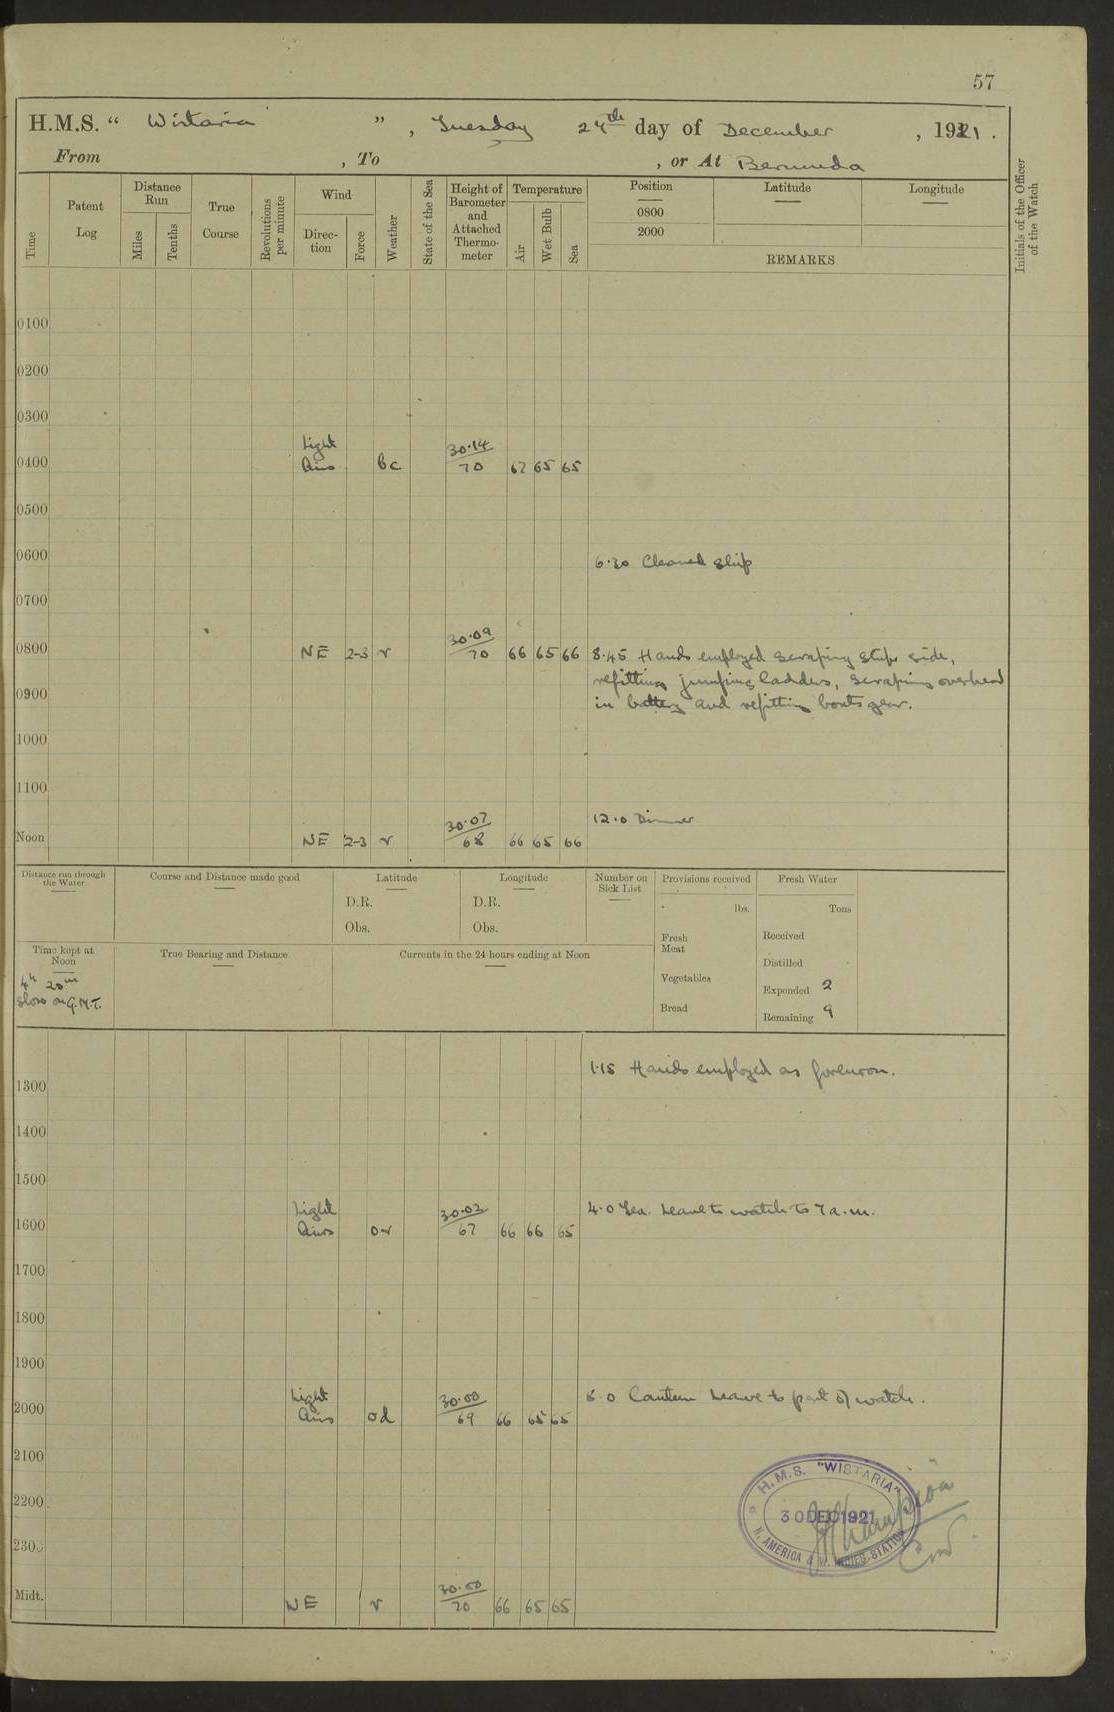 57
H.M.S. “ Wistaria ” , Tuesday 27th day of December , 1921 .
From , To , or At Bermuda
Time
Patent Log
Distance Run
Miles
Tenths
True Course
Revolutions per minute
Wind
Direc- tion
Force
Weather
State of the Sea
Height of Barometer and Attached Thermo- meter
Temperature
Air
Wet Bulb
Sea
Position
0800
2000
Latitude
Longitude
REMARKS
Initials of the Officer of the Watch
0100
0200
0300
Light 30·14
0400 Airs bc 70 67 65 65
0500
0600
6·30 Cleaned ship
0700
30·09
0800 NE 2-3 r 70 66 65 66 8·45 Hands employed scraping ships side,
refitting jumping ladders, scraping overhead
0900
in battery and refitting boats gear.
1000
1100
30·07 12·0 Dinner
Noon NE 2-3 r 68 66 65 66
Distance run through the Water
Course and Distance made good
Latitude
D.R.
Obs.
Longitude
D.R.
Obs.
Number on Sick List
Provisions received
lbs.
Fresh Meat
Vegetables
Bread
Fresh Water
Tons
Received
Distilled
Expended 2
Remaining 9
Time kept at Noon
4h 20m
slow on G.M.T.
True Bearing and Distance
Currents in the 24 hours ending at Noon
1·15 Hands employed as forenoon.
1300
1400
1500
Light 30·03 4·0 Tea. Leave to watch to 7 a.m.
1600 Airs or 67 66 66 65
1700
1800
1900
Light 30·00 8·0 Canteen Leave to part of watch.
2000 Airs od 69 66 65 65
2100
2200
2300
30·00
Midt. NE r 70 66 65 65
H.M.S. "WISTARIA"
30 DEC 1921
N. AMERICA & W. INDIES STATION
Champion